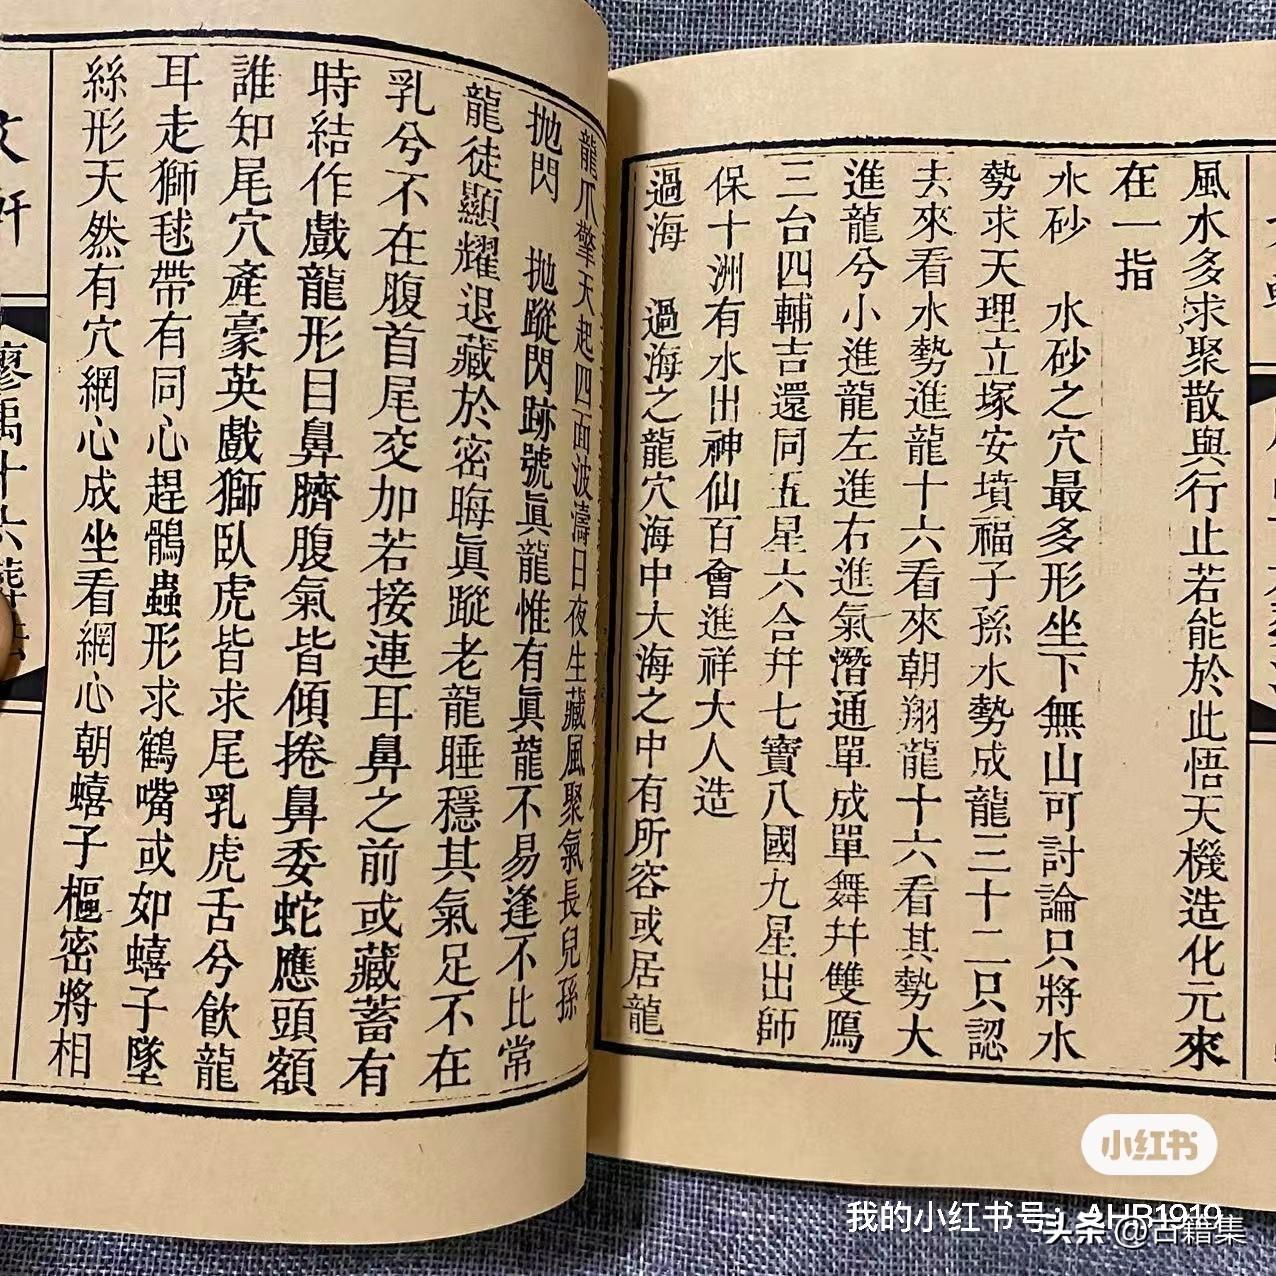 風水多求聚散與行止若能於此悟天機造化元來
在一指
水砂　水砂之穴最多形坐下無山可討論只將水
勢求天理立塚安墳福子孫水勢成龍三十二只認
去來看水勢進龍十六看來朝翔龍十六看其勢大
進龍兮小進龍左進右進氣潛通單成單舞幷雙鴈
三台四輔吉還同五星六合幷七寶八國九星出師
保十洲有水出神仙百會進祥大人造
過海　過海之龍穴海中大海之中有所容或居龍
龍爪擎天起四面波濤日夜生藏風聚氣長兒孫
拋閃　拋蹤閃跡號眞龍惟有眞龍不易逢不比常
龍徒顯耀退藏於密晦眞蹤老龍睡穩其氣足不在
乳兮不在腹首尾交加若接連耳鼻之前或藏蓄有
時結作戲龍形目鼻臍腹氣皆傾捲鼻委蛇應頭額
誰知尾穴產豪英戲獅臥虎皆求尾乳虎舌兮飮龍
耳走獅毬帶有同心趕鶻蟲形求鶴嘴或如蟢子墜
絲形天然有穴網心成坐看網心朝蟢子樞密將相
廖禹十六
小红书
我的小红书号：AHB1919
头条 @古籍集